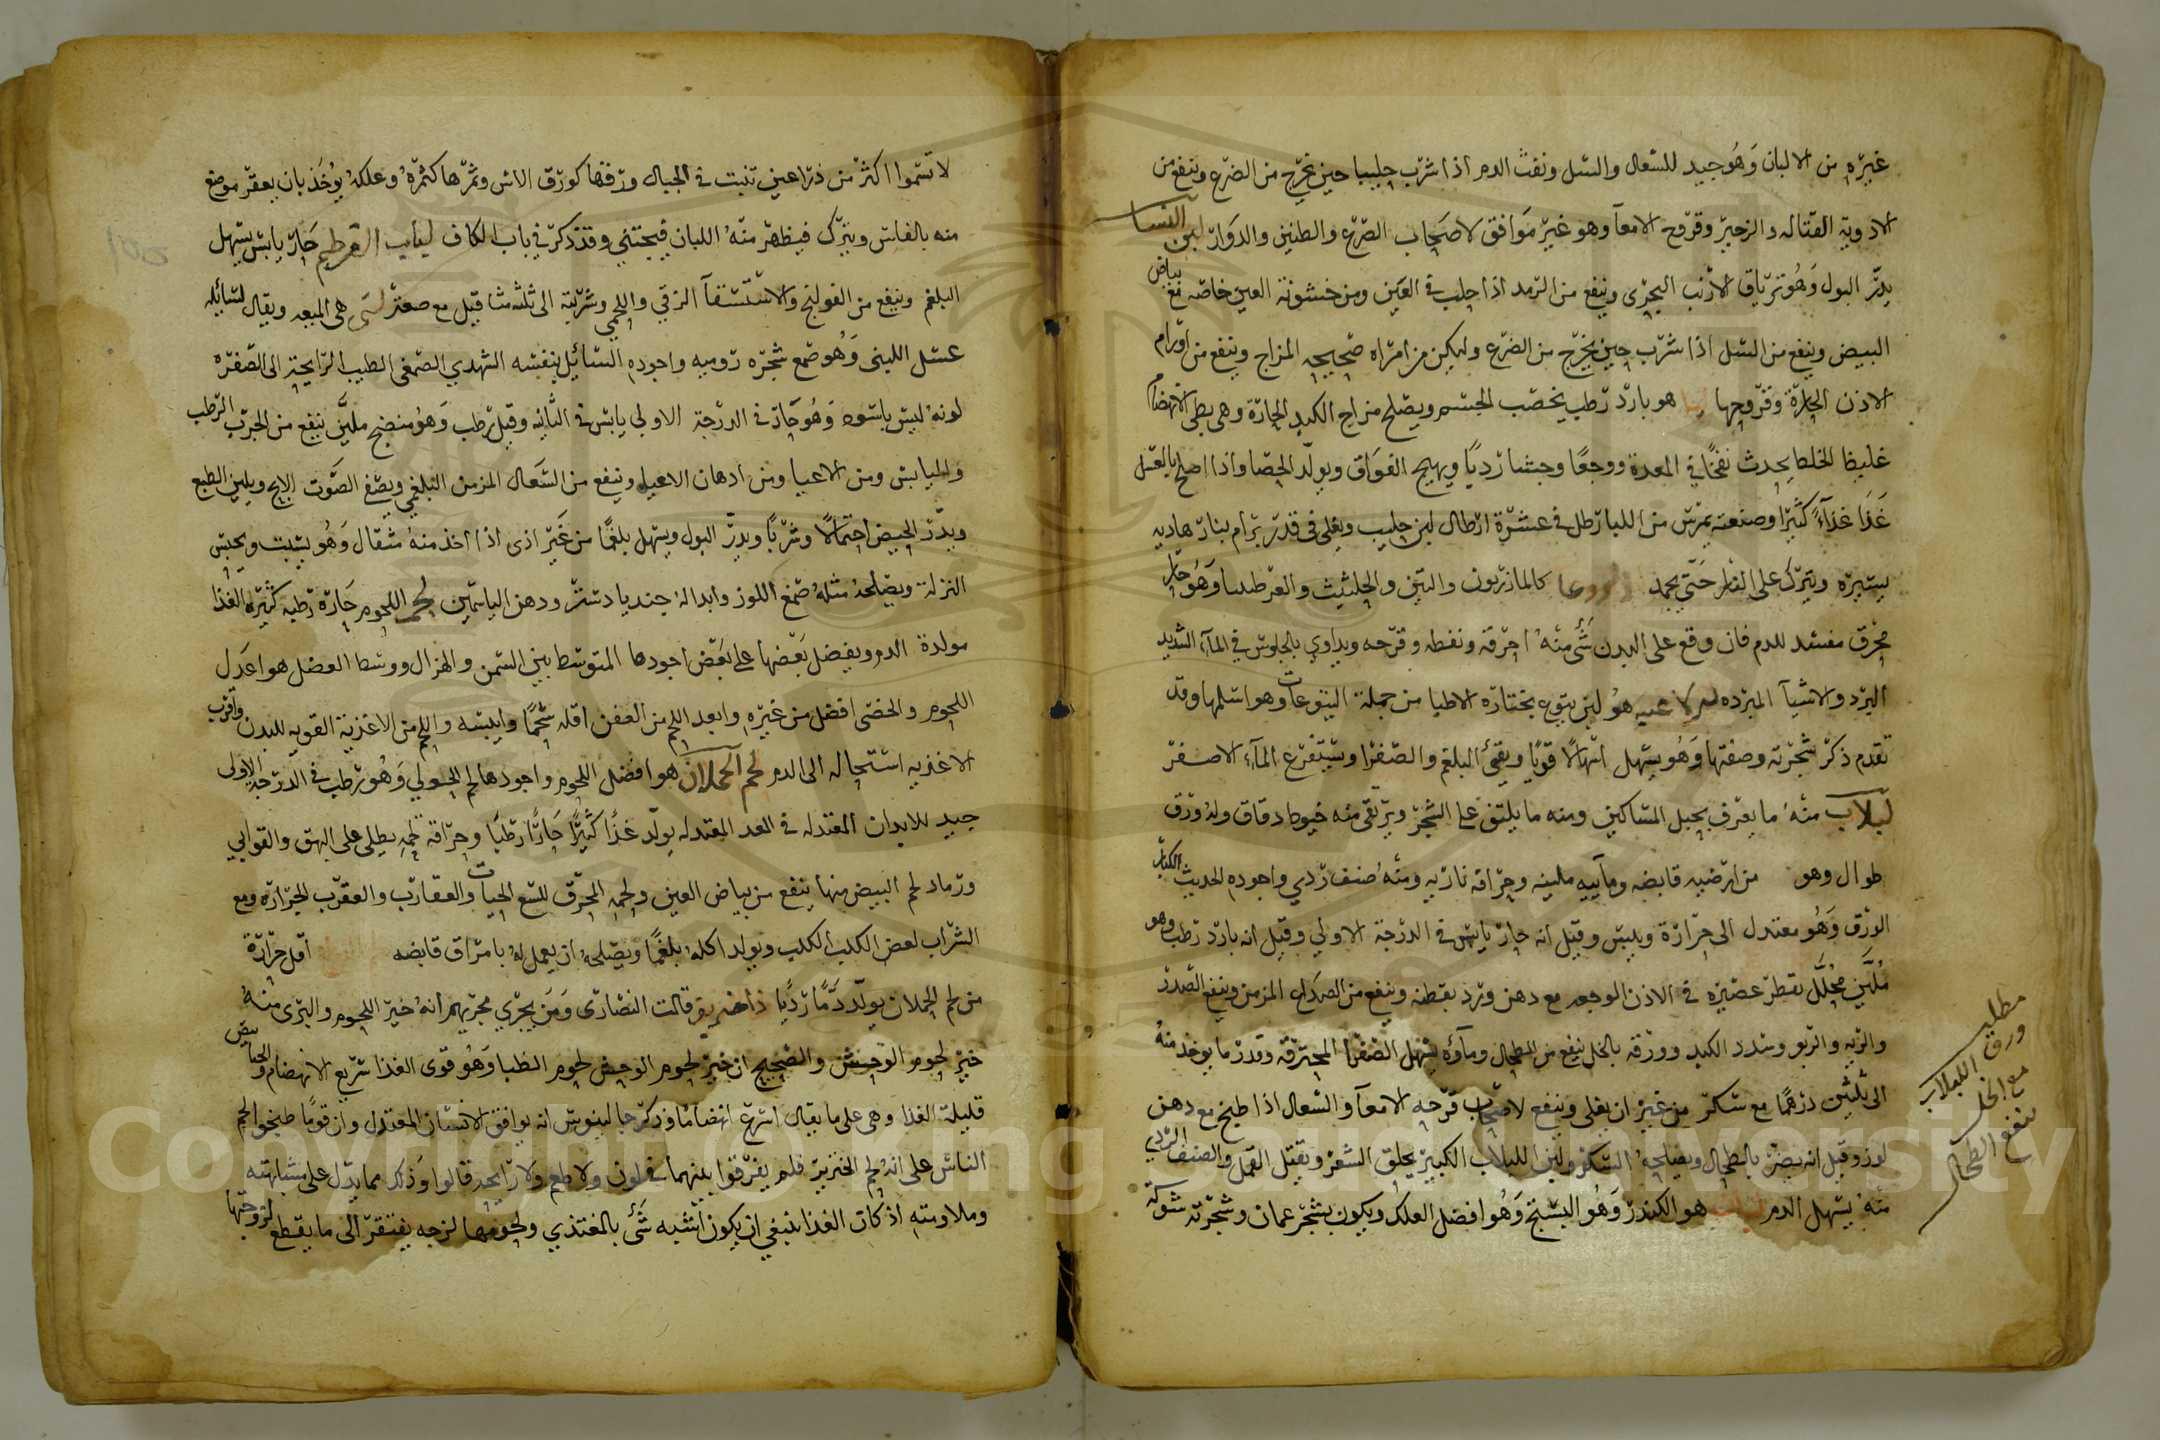 غيره من الالبان وهو جيد للسعال والسل ونفث الدم اذا شرب حليبا حين يخرج من الضرع وينفع من
الادوية القتاله والزحير وقروح الامعآ وهو غير موافق لاصحاب الصرع والطنين والدوار لبن النسا
يدر البول وهو ترياق الارنب البحرى وينفع من الرمد اذا حلب في العين ومن خشونة العين خاصه مع بياض
البيض وينفع من السل اذا شرب حين يخرج من الضرع وليكن من امراه صحيحه المزاج وينفع من اورام
الاذن الحارة وقروحها هو بارد رطب يخصب الجسم ويصلح مزاج الكبد الحارة وهى بطى الانهضام
غليظ الخلط يحدث نفخًا في المعدة ووجعًا وجشا رديًا ويهيج الفواق ويولد الحصا واذا اصلح بالعسل
غذا غذآءً كثيرًا وصنعته يمرس من اللبا رطل في عشرة ارطال لبن حليب ويغلى في قدر برام بنار هاديه
يسيره ويترك على النار حتى يجمد كالمازريون والتين والحلتيث وهو حار
محرق مفسد للدم فان وقع على البدن شئ منه احرقه ونفطه وقرحه ويداوي بالجلوس في المآء الشديد
البرد والاشيآ المبرده هو لبن يتوع يختاره الاطبا من جملة اليتوعات وهو اسلمها وقد
تقدم ذكر شجرته وصفتها وهو يسهل اسهالًا قويًا ويقئ البلغم والصفرا ويستفرغ المآء الاصفر
لبلاب منه ما يعرف بحبل المساكين ومنه ما يلتف على الشجر ويرتقى منه خيوط دقاق وله ورق
طوال وهو من ارضيه قابضه ومآئيه ملينه وحراقه ناريه ومنه صنف ردي واجوده الحديث الكبار
الورق وهو معتدل الى حرارة ويبس وقيل انه حار يابس في الدرجة الاولي وقيل انه بارد رطب وهو
ملين محلل يقطر عصيره في الاذن الوجعه مع دهن ورد بقطنه وينفع من الصداع المزمن وينفع الصدر
والريه والربو وسدد الكبد وورقه بالخل ينفع من الطحال ومآؤه يسهل الصفرا المحترقه وقدر ما يوخذ منه
الى ثلثين درهمًا مع سكر من غير ان يغلى وينفع لاصحاب قرحه الامعآ والسعال اذا طبخ مع دهن
لوز وقيل انه يضر بالطحال ويصلحه السكر ولبن اللبلاب الكبير يحلق الشعر ويقتل القمل والصنف الردي
منه يسهل الدم هو الكندر وهو البستج وهو افضل العلك ويكون بشجر عمان وشجرته شوكة
مطلب
ورق اللبلاب
مع الخل
ينفع الطحال
لا تسموا اكثر من ذراعين تنبت في الجبال ورقها كورق الاس وثمرها كثمره وعلكه يوخذ بان يعقر موضع
منه بالفاس ويترك فيظهر منه اللبان فيجتني وقد ذكر في باب الكاف لباب القرطم حار يابس يسهل
البلغم وينفع من القولنج والاستسقآ الزقي واللحمي وشربته الى ثلثه مثاقيل مع صعتر لبنى هى الميعه ويقال لسائله
عسل اللبنى وهو صمغ شجره روميه واجوده السائل بنفسه الشهدي الصمغى الطيب الرايحه الى الصفره
لونه ليس باسود وهو حار في الدرجة الاولي يابس في الثانيه وقيل رطب وهو منضج ملين ينفع من الجرب الرطب
واليابس ومن الاعيا ومن ادهان الاعيا وينفع من السعال المزمن البلغمي ويصفى الصوت الابح ويلين الطبع
ويدر الحيض احتمالًا وشربًا ويدر البول ويسهل بلغمًا من غير اذى اذا اخذ منه مثقال وهو يسبت ويحبس
النزلة ويصلحه مثله صمغ اللوز وابداله جندبادستر ودهن الياسمين لحم اللحوم حارة رطبه كثيره الغذا
مولدة الدم ويفضل بعضها على بعض اجودها المتوسط بين السمن والهزال ووسط العضل هو اعدل
اللحوم والخصى افضل من غيره وابعد اللحم من العفن اقله شحمًا وايبسه واللحم من الاغذية القويه للبدن واقرب
الاغذيه استحاله الى الدم لحم الحملان هو افضل اللحوم واجودها لحم الحولي وهو رطب في الدرجة الاولى
جيد للابدان المعتدله في المعد المعتدله يولد غذًا كثيرًا حارًا رطبًا وحراقة لحمه يطلى على البهق والقوابي
ورماد لحم البيض منها ينفع من بياض العين ولحمه المحرق للسع الحيات والعقارب والعقرب الجراره ومع
الشراب لعض الكلب الكلب ويولد اكله بلغمًا ويصلحه ان يعمل له بامراق قابضه اقل حرارة
من لحم الحملان يولد دمًا رديًا قالت النصارى ومن يجري مجريهم انه خير اللحوم والبرى منه
خير لحوم الوحش والصحيح ان خير لحوم الوحش لحوم الظبا وهو قوى الغذا سريع الانهضام والحبا بيض
قليلة الغذا وهى على ما يقال اسرع انهضامًا وذكر جالينوس انه يوافق الانسان المعتدل وان قومًا طبخوا لحم
الناس على انه لحم الخنزير فلم يفرقوا بينهما في لون ولا طعم ولا رايحه قالوا وذلك مما يدل على مشابهته
وملاومته اذ كان الغذا ينبغي ان يكون اشبه شئ بالمغتذي ولحومها لزجه يفتقر الى ما يقطع لزوجتها
Copyright © King Saud University